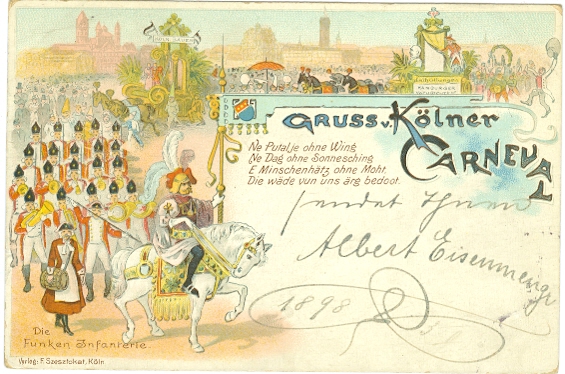 GRUSS v. Kölner
CARNEVAL
Ne Putalje ohne Wing
Ne Dag ohne Sonnesching
E Minschenhätz ohne Moht.
Die wäde vun uns ärg bedoot.
sendet Ihnen
Albert Eisenmenger
1898
Die
Funken Infanterie.
Verlag: F. Szesztokat, Köln